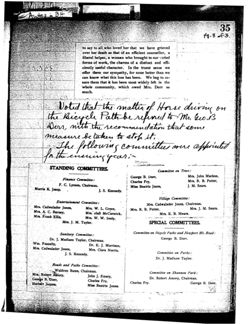 35
to say to all who loved her that we have grieved
over her death as that of an efficient counsellor, a
liberal helper, a woman who brought to our varied
forms of work, the charms of a distinct and effi-
ciently useful character. In the truest sense we
offer them our sympathy, for none better than we
can know what this loss has been. We beg to as-
sure them that it has been most widely felt in the
whole community, which owed Mrs. Dorr so
much.
Voted that the matter of Horse driving on
the Bicycle Path be referred to Mr. Geo. B.
Dorr, with the recommendation that some
measure be taken to stop it.
The following committees were appointed
for the ensuing year:-
STANDING COMMITTEES.
Finance Committee:
F. C. Lynam, Chairman.
Morris K. Jesup. J. S. Kennedy.
Entertainment Committee:
Mrs. Cadwalader Jones, Mrs. W. L. Green,
Mrs. A. C. Barney, Mrs.
Mrs. Frank Ellis, Mrs. W. W. Seely,
Mrs. J. M. Tydie.
Sanitary Committee:
Dr. J. Madison Taylor, Chairman.
Wm. Fennelly, Dr. E. J. Morrison,
Mrs. Cadwalader Jones, Mrs. Clara
J. S. Kennedy.
Roads and Paths Committee:
Waldron Bates, Chairman.
Mrs. Robert Amory, John J. Emery,
George B. Dorr, Charles Fry,
Herbert Jaques, Miss Beatrix Jones.
Committee on Trees:
George B. Dorr, Mrs. John Markoe,
Charles Fry, Mrs. R. B. Potter,
Miss Beatrix Jones, J. M. Sears.
Village Committee:
Mrs. Cadwalader Jones, Chairman.
Mrs. R. B. Potter, Mrs. J. M. Sears,
Mrs. E. B. Mears.
SPECIAL COMMITTEES.
Committee on Bicycle Paths and Newport Mt. Road:
George B. Dorr.
Committee on Parks:
Dr. J. Madison Taylor.
Committee on Shannon Park:
Dr. Robert Amory, Chairman.
Charles Fry, George B. Dorr.